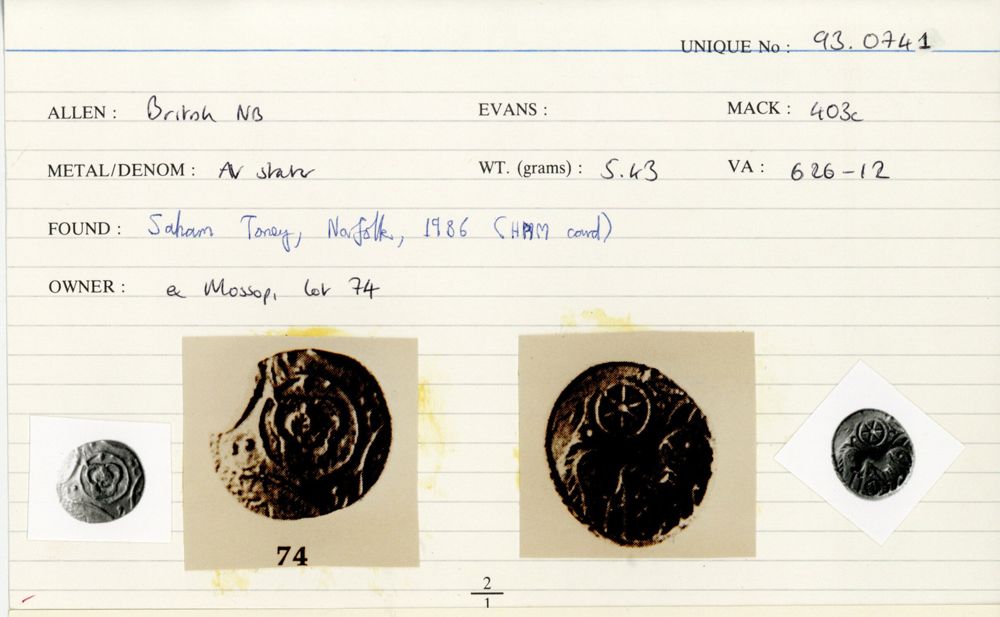 UNIQUE No : 93.0741
ALLEN : British NB EVANS : MACK : 403c
METAL/DENOM : AV stater WT. (grams) : 5.43 VA : 626-12
FOUND : Saham Toney, Norfolk, 1986 (HAM card)
OWNER : ex Mossop, lot 74
74
2
1